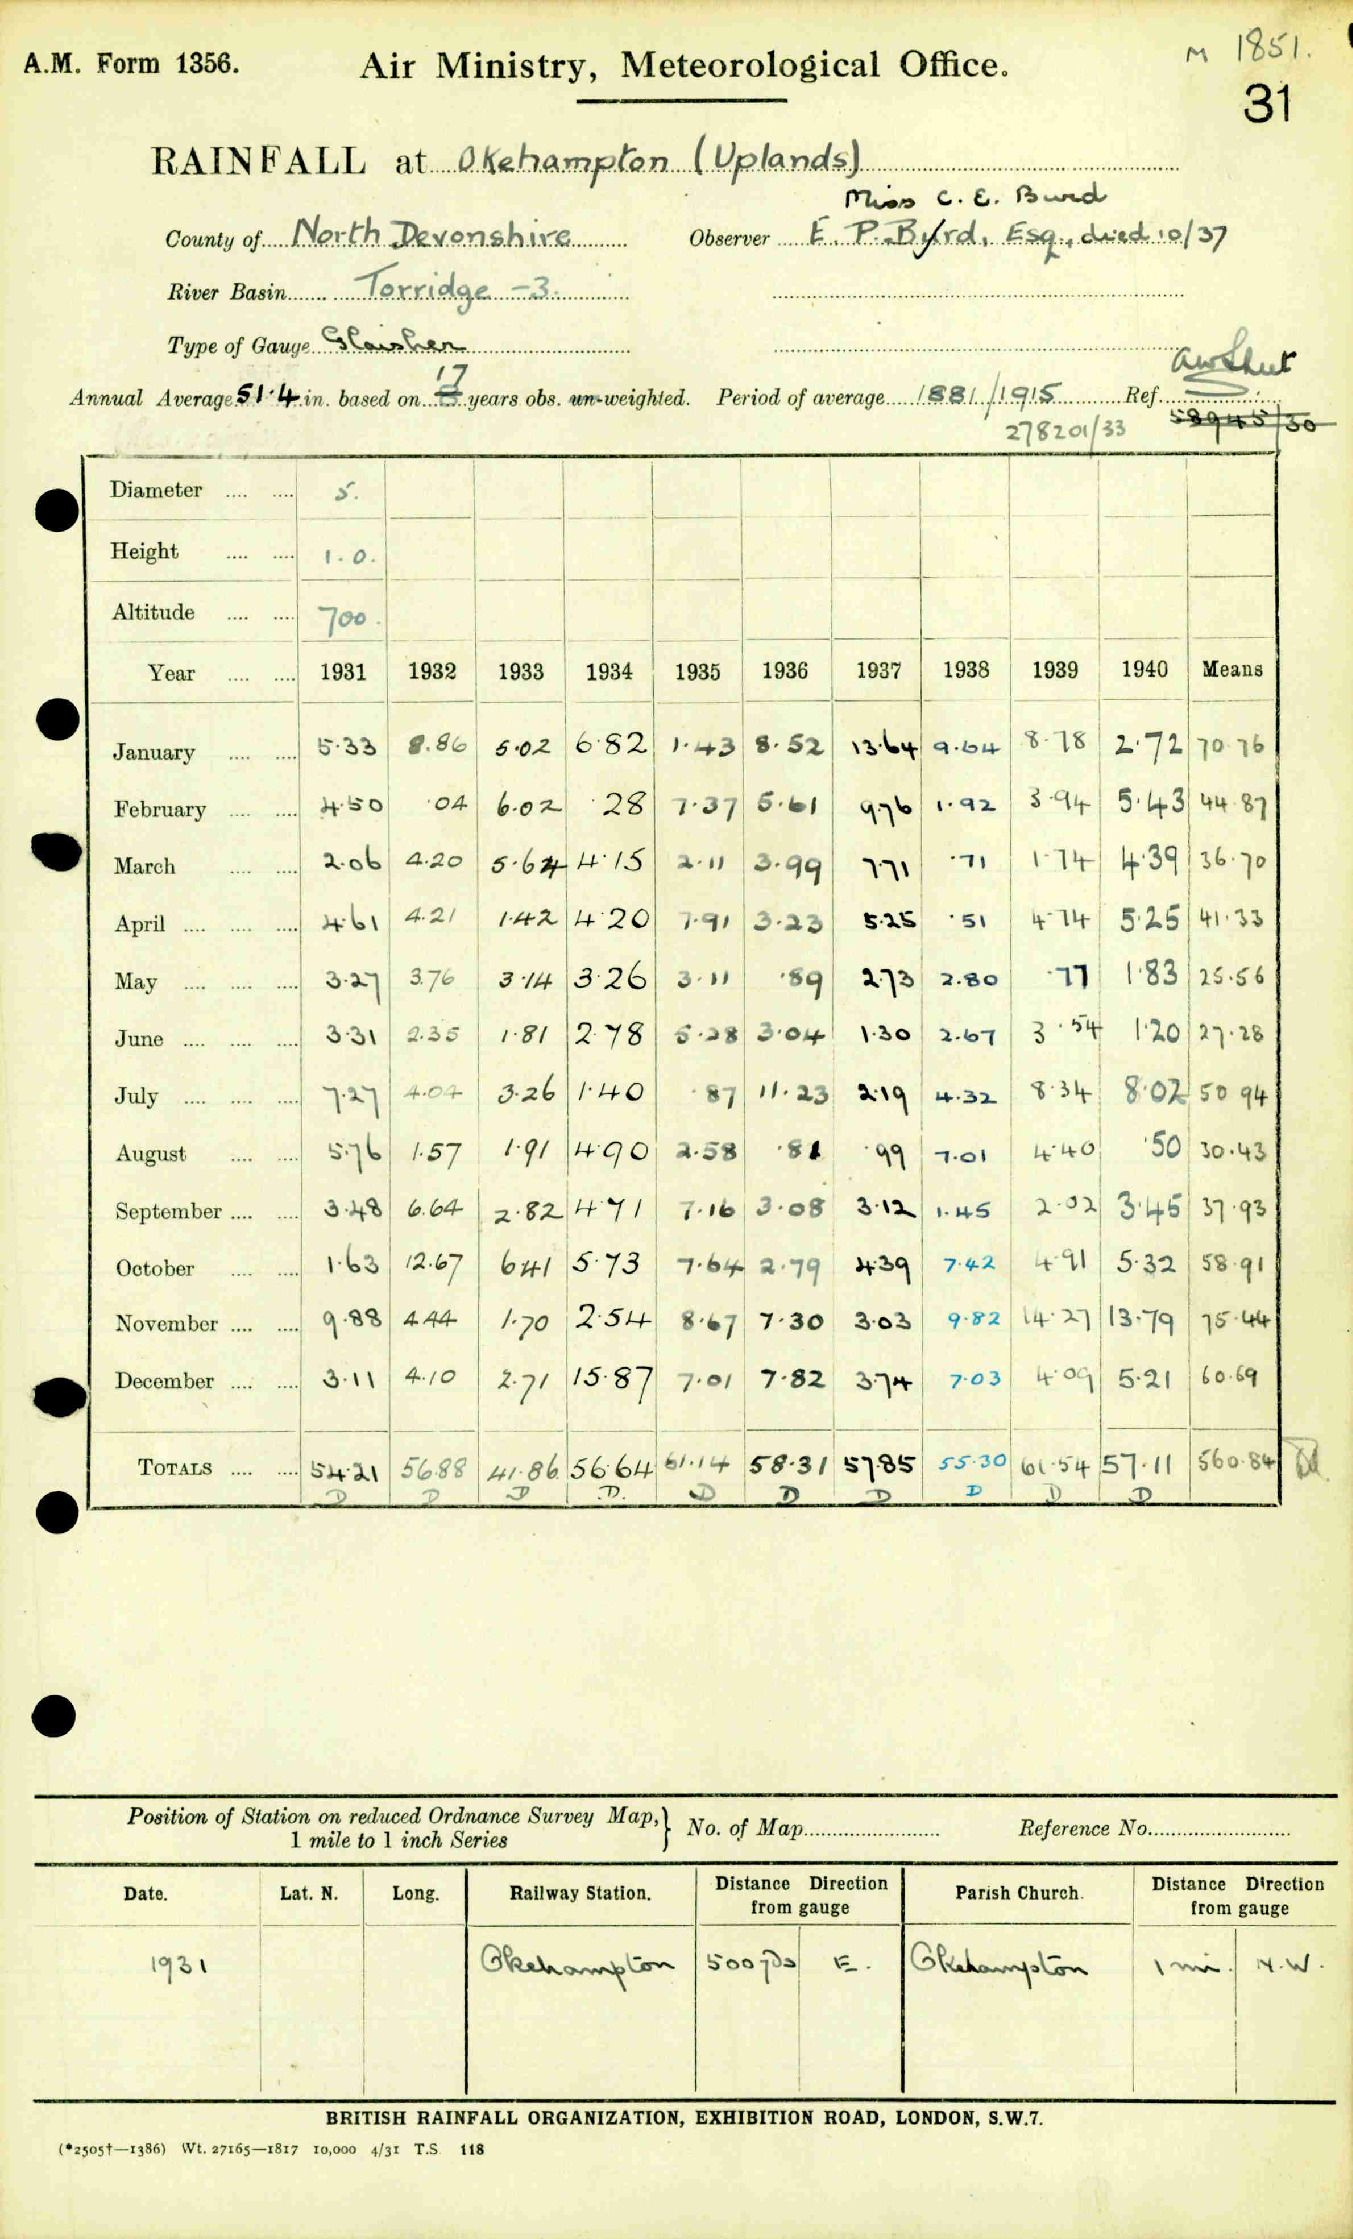 A.M. Form 1356. Air Ministry, Meteorological Office. M 1851.
31
RAINFALL at Okehampton (Uplands)
Miss C. E. Burd
County of North Devonshire Observer E. P. Burd, Esq., died 10/37
River Basin Torridge -3.
Type of Gauge Glaisher
17
Annual Average 51.4 in. based on years obs. un-weighted. Period of average 1881/1915 Ref.
278201/33 58945/30
Diameter 5.
Height 1.0.
Altitude 700.
Year 1931 1932 1933 1934 1935 1936 1937 1938 1939 1940 Means
January 5.33 8.86 5.02 6.82 1.43 8.52 13.64 9.64 8.78 2.72 70.76
February 4.50 .04 6.02 .28 7.37 5.61 9.76 1.92 3.94 5.43 44.87
March 2.06 4.20 5.64 4.15 2.11 3.99 7.71 .71 1.74 4.39 36.70
April 4.61 4.21 1.42 4.20 7.91 3.23 5.25 .51 4.74 5.25 41.33
May 3.27 3.76 3.14 3.26 3.11 .89 2.73 2.80 .77 1.83 25.56
June 3.31 2.35 1.81 2.78 5.28 3.04 1.30 2.67 3.54 1.20 27.28
July 7.27 4.04 3.26 1.40 .87 11.23 2.19 4.32 8.34 8.02 50.94
August 5.76 1.57 1.91 4.90 2.58 .81 .99 7.01 4.40 .50 30.43
September 3.48 6.64 2.82 4.71 7.16 3.08 3.12 1.45 2.02 3.45 37.93
October 1.63 12.67 6.41 5.73 7.64 2.79 4.39 7.42 4.91 5.32 58.91
November 9.88 4.44 1.70 2.54 8.67 7.30 3.03 9.82 14.27 13.79 75.44
December 3.11 4.10 2.71 15.87 7.01 7.82 3.74 7.03 4.09 5.21 60.69
TOTALS 54.21 56.88 41.86 56.64 61.14 58.31 57.85 55.30 61.54 57.11 560.84
D D D D D D D D D D
Position of Station on reduced Ordnance Survey Map, 1 mile to 1 inch Series } No. of Map Reference No.
Date. Lat. N. Long. Railway Station. Distance Direction from gauge Parish Church. Distance Direction from gauge
1931 Okehampton 500 yds E. Okehampton 1 mi. N.W.
BRITISH RAINFALL ORGANIZATION, EXHIBITION ROAD, LONDON, S.W.7.
(*2505†—1386) Wt. 27165—1817 10,000 4/31 T.S. 118